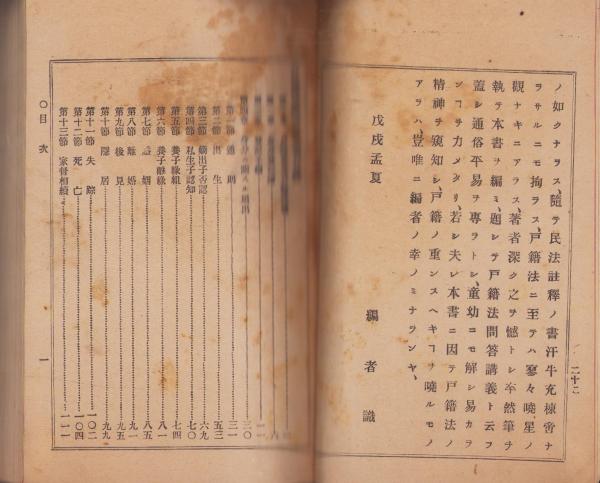 二十二
ノ如クナラス、隨テ民法註釋ノ書汗牛充棟啻ナ
ラサルニモ拘ラス、戸籍法ニ至テハ寥々曉星ノ
觀ナキニアラス、著者深ク之ヲ憾トシ卒然筆ヲ
執テ本書ヲ編ミ、題シテ戸籍法問答講義ト云フ
蓋シ通俗平易ヲ專ラトシ、童幼ニモ解シ易カラ
ンコヲ力メタリ、若シ夫レ本書ニ因テ戸籍法ノ
精神ヲ窺知シ、戸籍ノ重ンスヘキコヲ曉ルモノ
アラハ、豈唯ニ編者ノ幸ノミナランヤ、
戊戌孟夏
編者識
第二節 出生 五三
第三節 嫡出子否認 六九
第四節 私生子認知 七〇
第五節 養子緣組 七四
第六節 養子離緣 八一
第七節 婚姻 八五
第八節 離婚 九一
第九節 後見 九五
第十節 隱居 九九
第十一節 失踪 一〇二
第十二節 死亡 一〇四
第十三節 家督相續 一一一
〇目次
一